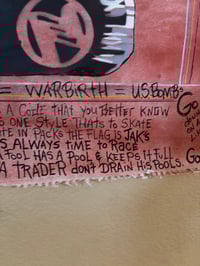 = WARBIRTH = U.S. BOMBS =
S A CODE THAT YOU BETTER KNOW
S ONE STYLE THATS TO SKATE
TE IN PACKS THE FLAG IS JAK'S
S ALWAYS TIME TO RAGE
A FOOL HAS A POOL & KEEPS IT FULL
A TRADER DON'T DRAIN HIS POOLS. GO